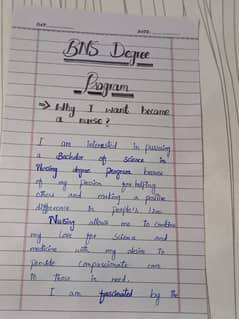 DAY:
DATE:
BNS Degree
Program
→ Why I want became
a nurse?
I am interested in pursuing
a Bachelor of Science in
Nursing degree program because
of my passion for helping
others and making a positive
difference in people's lives.
Nursing allows me to combine
my love for science and
medicine with my desire to
provide compassionate care
to those in need.
I am fascinated by the